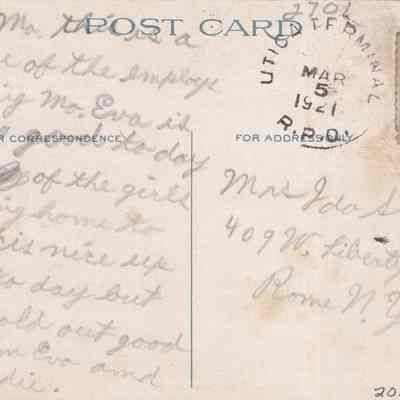 2701
POST CARD
Mo. this is a
e of the employe
ng Mo. Eva is
good to day
of the girls
ing home to
is nice up
to day but
old out good
m Eva and
die.
R CORRESPONDENCE
UTICA TERMINAL
MAR
5
1921
R.P.O.
FOR ADDRESS ONLY
Mrs Ida S
409 W. Liberty
Rome N. Y
20